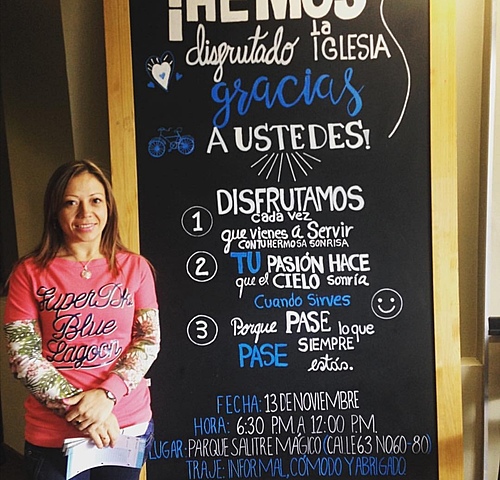 ¡HEMOS
disfrutado la
IGLESIA
gracias
A USTEDES!
DISFRUTAMOS
1 cada vez
que vienes a Servir
CON TU HERMOSA SONRISA
2 TU PASIÓN HACE
que el CIELO sonría
Cuando Sirves
3 Porque PASE lo que
PASE SIEMPRE
estás.
FECHA: 13 DE NOVIEMBRE
HORA: 6:30 P.M A 12:00 P.M.
LUGAR: PARQUE SALITRE MÁGICO (CALLE 63 NO 60-80)
TRAJE: INFORMAL, CÓMODO Y ABRIGADO
Super Dry
Blue
Lagoon